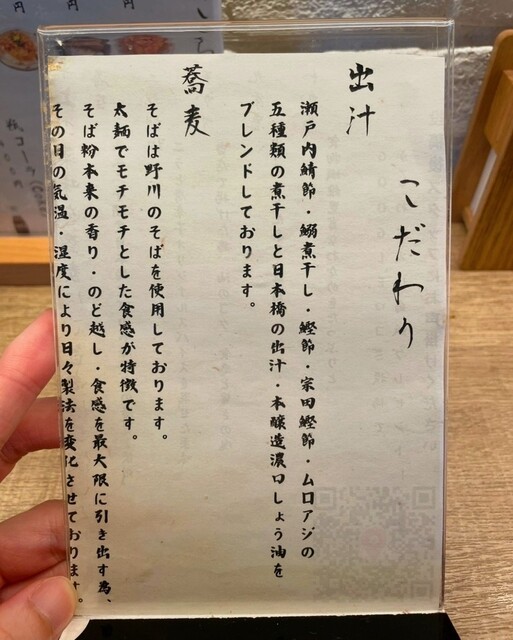 こだわり
出汁
瀬戸内鯖節・鰯煮干し・鰹節・宗田鰹節・ムロアジの
五種類の煮干しと日本橋の出汁・本醸造濃口しょう油を
ブレンドしております。
蕎麦
そばは野川のそばを使用しております。
太麺でモチモチとした食感が特徴です。
そば粉本来の香り・のど越し・食感を最大限に引き出す為、
その日の気温・湿度により日々製法を変化させております。
円
円